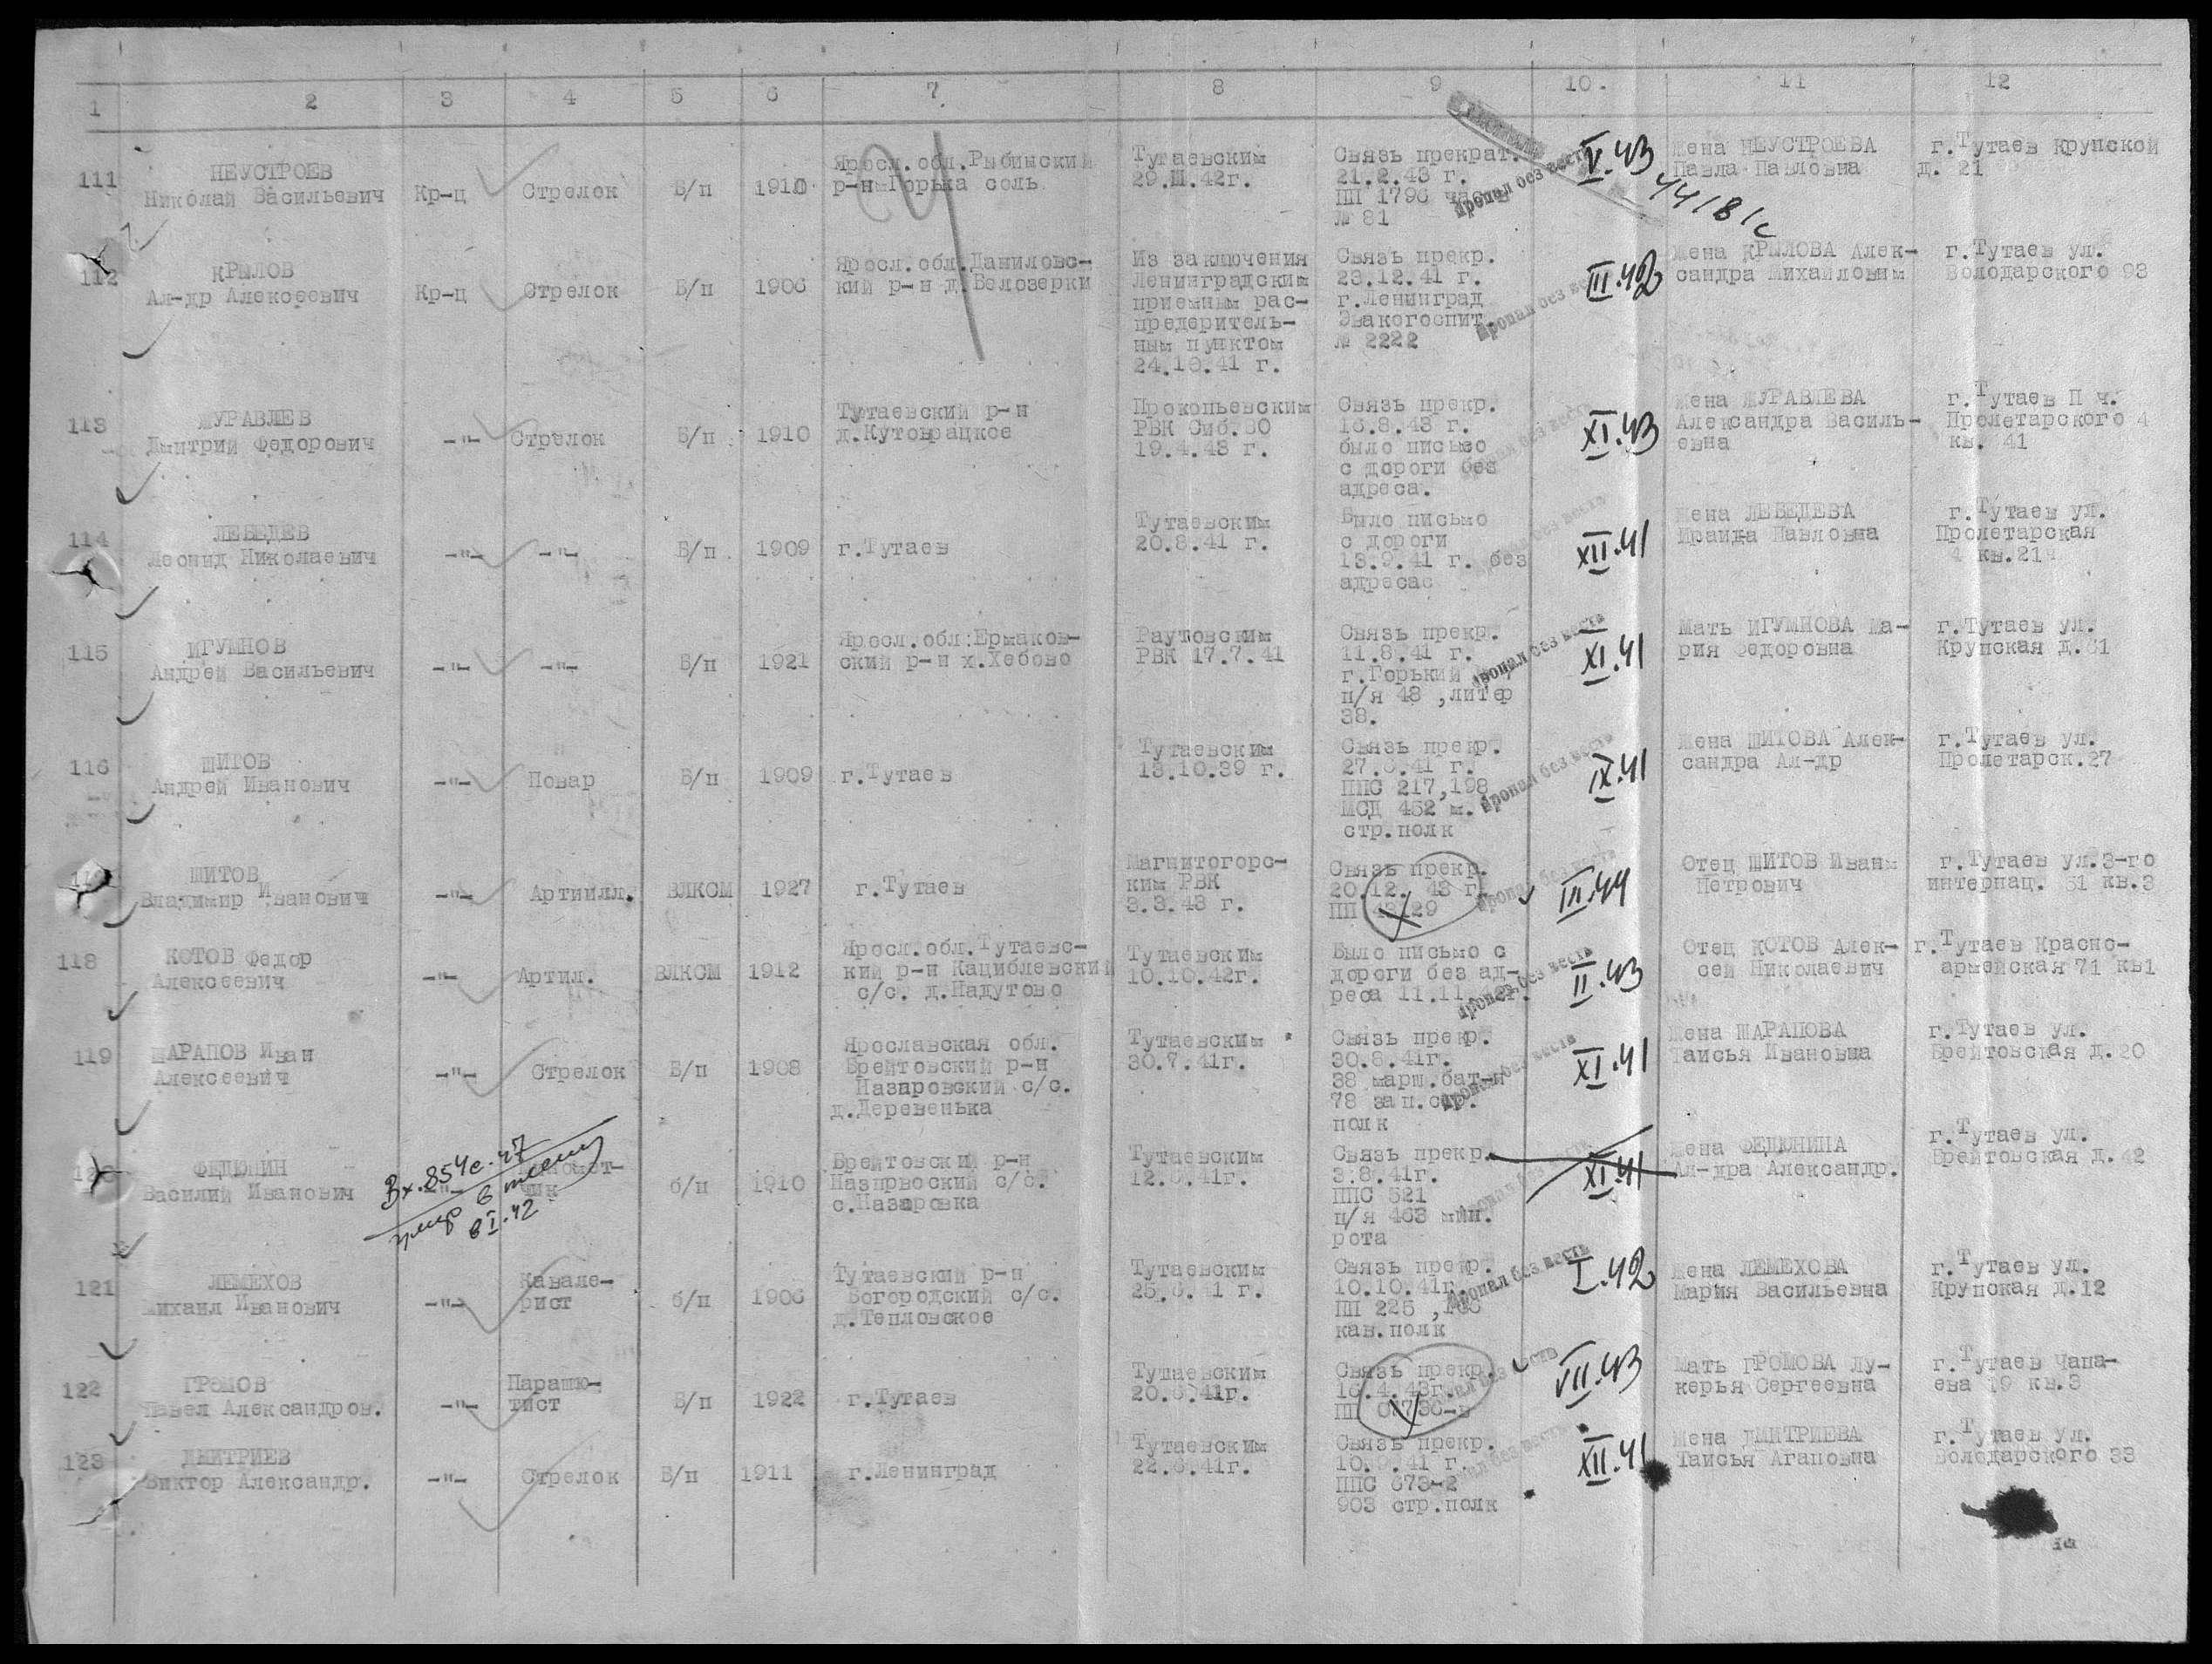 1 2 3 4 5 6 7 8 9 10. 11 12
111
НЕУСТРОЕВ
Николай Васильевич
Кр-ц
Стрелок
Б/п
1910
Яросл.обл.Рыбинский
р-н Горька соль
Тутаевским
29.Ш.42г.
Связь прекрат.
21.2.43 г.
ПП 1796 часть
№ 81
Пропал без вести
V.43
44181с
Жена НЕУСТРОЕВА
Павла Павловна
г.Тутаев Крупской
д. 21
112
КРЫЛОВ
Ал-др Алексеевич
Кр-ц
Стрелок
Б/п
1906
Яросл.обл.Даниловс-
кий р-н д.Белозерки
Из заключения
Ленинградским
приемным рас-
предеритель-
ным пунктом
24.10.41 г.
Связь прекр.
23.12.41 г.
г.Ленинград
Эвакогоспит.
№ 2222
Пропал без вести
III.42
Жена КРЫЛОВА Алек-
сандра Михайловны
г.Тутаев ул.
Володарского 93
113
ЖУРАВЛЕВ
Дмитрий Федорович
-"-
Стрелок
Б/п
1910
Тутаевский р-н
д.Кутоврацкое
Прокопьевским
РВК Сиб.ВО
19.4.43 г.
Связь прекр.
16.8.43 г.
было письмо
с дороги без
адреса.
XI.43
Жена ЖУРАВЛЕВА
Александра Василь-
евна
г.Тутаев П ч.
Пролетарского 4
кв. 41
114
ЛЕБЕДЕВ
Леонид Николаевич
-"-
-"-
Б/п
1909
г.Тутаев
Тутаевским
20.8.41 г.
Было письмо
с дороги
13.9.41 г. без
адресас
XII.41
Жена ЛЕБЕДЕВА
Ираида Павловна
г.Тутаев ул.
Пролетарская
4 кв.21ч
115
ИГУМНОВ
Андрей Васильевич
-"-
-"-
Б/п
1921
Яросл.обл.Ермаков-
ский р-н х.Хебово
Раутовским
РВК 17.7.41
Связь прекр.
11.8.41 г.
г.Горький
п/я 43 ,литер
38.
Пропал без вести
XI.41
Мать ИГУМНОВА Ма-
рия Федоровна
г.Тутаев ул.
Крупская д.61
116
ШИТОВ
Андрей Иванович
-"-
Повар
Б/п
1909
г.Тутаев
Тутаевским
13.10.39 г.
Связь прекр.
27.6.41 г.
ППС 217,198
МСД 452 м.
стр.полк
Пропал без вести
IX.41
Жена ШИТОВА Алек-
сандра Ал-др
г.Тутаев ул.
Пролетарск.27
ШИТОВ
Владимир Иванович
-"-
Артиилл.
ВЛКСМ
1927
г.Тутаев
Магнитогорс-
ким РВК
3.3.43 г.
Связь прекр.
20.12. 43 г.
ПП 43129
Пропал без вести
III.44
Отец ШИТОВ Иван
Петрович
г.Тутаев ул.3-го
интернац. 51 кв.3
118
КОТОВ Федор
Алексеевич
-"-
Артил.
ВЛКСМ
1912
Яросл.обл.Тутаевс-
кий р-н Кациблевский
с/с. д.Надутово
Тутаевским
10.10.42г.
Было письмо с
дороги без ад-
реса 11.11.42г.
Пропал без вести
II.43
Отец КОТОВ Алек-
сей Николаевич
г.Тутаев Красно-
армейская 71 кв1
119
ШАРАПОВ Иван
Алексеевич
-"-
Стрелок
Б/п
1908
Ярославская обл.
Брейтовский р-н
Назаровский с/с.
д.Деревенька
Тутаевским
30.7.41г.
Связь прекр.
30.8.41г.
38 марш.бат-н
78 зап.стр.
полк
Пропал без вести
XI.41
Жена ШАРАПОВА
Таисья Ивановна
г.Тутаев ул.
Брейтовская д.20
120
ФЕДЮНИН
Василий Иванович
Вх.854с.47
умер в плену
в I.42
б/п
1910
Брейтовский р-н
Назпрвоский с/с.
с.Назаровка
Тутаевским
12.6.41г.
Связь прекр.
3.8.41г.
ППС 521
п/я 463 мин.
рота
XI.41
Жена ФЕДЮНИНА
Ал-дра Александр.
г.Тутаев ул.
Брейтовская д.42
121
ЛЕМЕХОВ
Михаил Иванович
-"-
Кавале-
рист
б/п
1906
Тутаевский р-н
Богородский с/с.
д.Тепловское
Тутаевским
25.6.41 г.
Связь прекр.
10.10.41г.
ПП 225 ,166
кав.полк
Пропал без вести
I.42
Жена ЛЕМЕХОВА
Мария Васильевна
г.Тутаев ул.
Крупская д.12
122
ГРОМОВ
Павел Александров.
-"-
Парашю-
тист
Б/п
1922
г.Тутаев
Тутаевским
20.6.41г.
Связь прекр.
16.4.43г.
ПП 07736-в
VII.43
Мать ГРОМОВА Лу-
керья Сергеевна
г.Тутаев Чапа-
ева 19 кв.3
123
ДМИТРИЕВ
Виктор Александр.
-"-
Стрелок
Б/п
1911
г.Ленинград
Тутаевским
22.6.41г.
Связь прекр.
10.9.41 г.
ППС 673-2
903 стр.полк
XII.41
Жена ДМИТРИЕВА
Таисья Агаповна
г.Тутаев ул.
Володарского 33